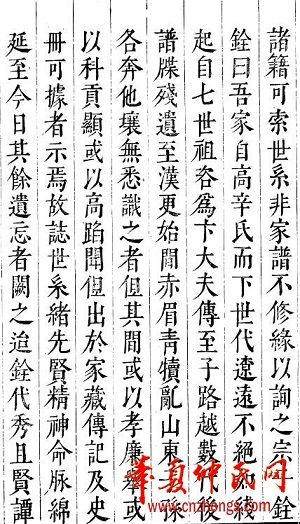 諸籍可索世系非家譜不修緣以詢之宗銓
銓曰吾家自高辛氏而下世代遼遠不絕如綫
起自七世祖咨爲卞大夫傳至子路越數十後
譜牒殘遺至漢更始間赤眉青犢亂山東子孫
各奔他壤無悉識之者但其間或以孝廉舉或
以科貢顯或以高蹈聞但出於家藏傳記及史
冊可據者示焉故誌世系緒先賢精神命脉綿
延至今日其餘遺忘者闕之迨銓代秀且賢譚
華夏仲氏网
www.cnzhongs.com